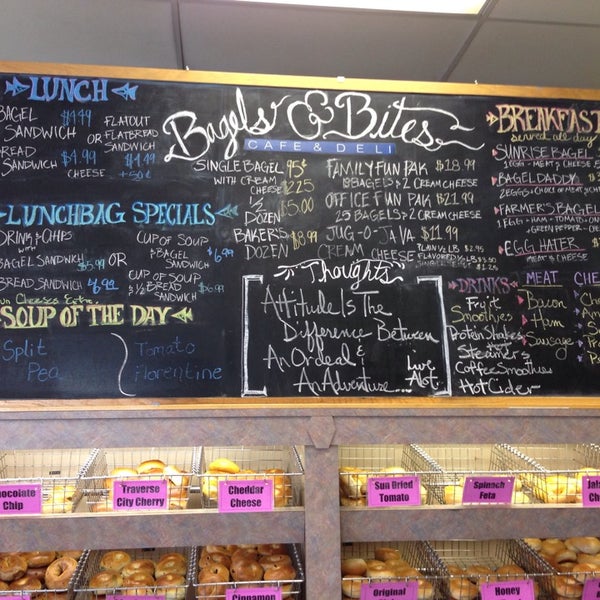 LUNCH
BAGEL SANDWICH $4.49
OR
FLATOUT FLATBREAD SANDWICH
BREAD SANDWICH $4.99
CHEESE +50¢
LUNCHBAG SPECIALS
DRINK & CHIPS
with
BAGEL SANDWICH $5.99
OR
BREAD SANDWICH
CUP OF SOUP
& BAGEL SANDWICH
CUP OF SOUP
& ½ BREAD SANDWICH
SOUP OF THE DAY
Split Pea
Tomato Florentine
Bagels & Bites
CAFE & DELI
SINGLE BAGEL 95¢
WITH CREAM CHEESE 2.25
½ DOZEN $5.00
BAKER'S DOZEN $8.99
FAMILY FUN PAK $18.99
2 CREAM CHEESE
OFFICE FUN PAK $21.99
25 BAGELS & 2 CREAM CHEESE
JUG-O-JAVA $11.99
CREAM CHEESE
PLAIN ½ LB
FLAVORED ½ LB
Thoughts
Attitude Is The
Difference Between
An Ordeal &
An Adventure...
Live
Alot!
BREAKFAST
served all day
SUNRISE BAGEL
1 EGG + MEAT & CHEESE
BAGEL DADDY
2 EGGS + CHOICE OF MEAT
FARMER'S BAGEL
1 EGG + HAM + TOMATO
GREEN PEPPER
EGG HATER
DRINKS
Fruit
Smoothies
Protein Shakes
Steamers
Coffee Smoothies
Hot Cider
MEAT
Bacon
Ham
Sausage
Chocolate Chip
Traverse City Cherry
Cheddar Cheese
Sun Dried Tomato
Spinach Feta
Cinnamon
Original
Honey